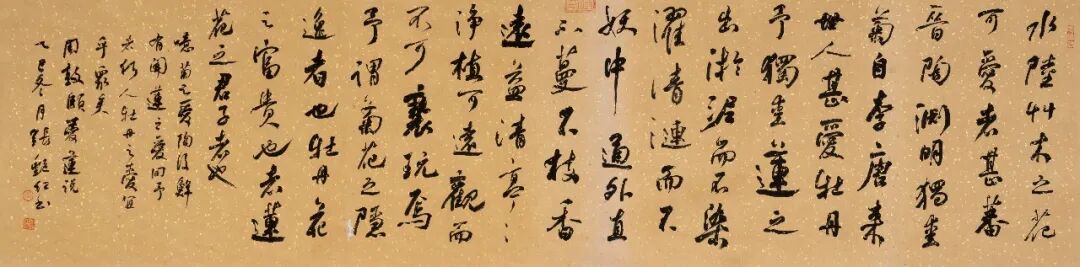 水陸艸木之花
可愛者甚蕃
晉陶淵明獨愛
菊自李唐来
世人甚愛牡丹
予獨愛蓮之
出淤泥而不染
濯清漣而不
妖中通外直
不蔓不枝香
遠益清亭〻
淨植可遠觀而
不可褻玩焉
予謂菊花之隱
逸者也牡丹花
之富貴也者蓮
花之君子者也
噫菊之愛陶後鮮
有聞蓮之愛同予
者何人牡丹之愛宜
乎衆矣
周敦頤愛蓮說
乙巳冬月張